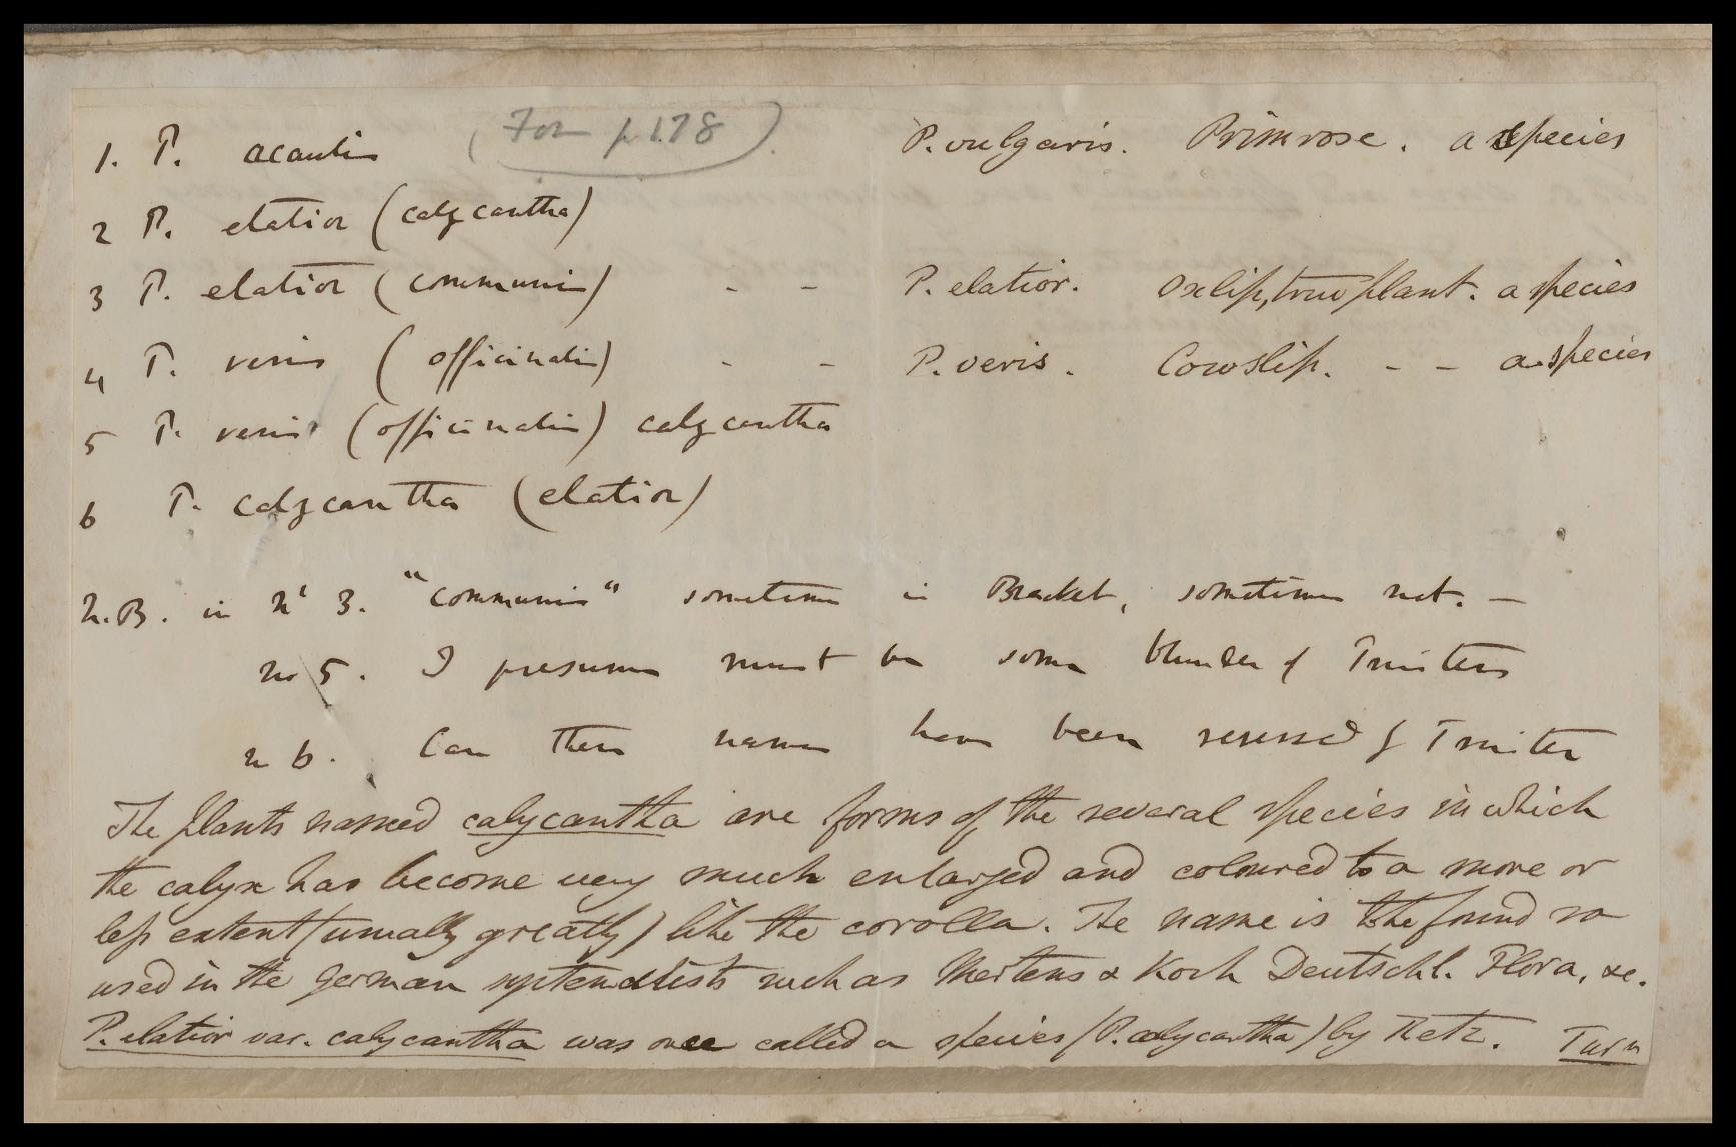 (For p 178)
1. P. acaulis P. vulgaris. Primrose. a species
2 P. elatior (calycantha)
3 P. elatior (communis) - - P. elatior. Oxlip, true plant. a species
4 P. veris (officinalis) - - P. veris. Cowslip. - - a species
5 P. veris (officinalis) calycantha
6 P. calycantha (elatior)
N.B. in No 3. "communis" sometimes in Bracket, sometimes not. —
no 5. I presume must be some blunder of Printers
n 6. Can these names have been reversed by Printer
The plants named calycantha are forms of the several species in which
the calyx has become very much enlarged and coloured to a more or
less extent (usually greatly) like the corolla. The name is to be found so
used in the German systematists such as Mertens & Koch Deutschl. Flora, &c.
P. elatior var. calycantha was once called a species (P. calycantha) by Retz. Turn